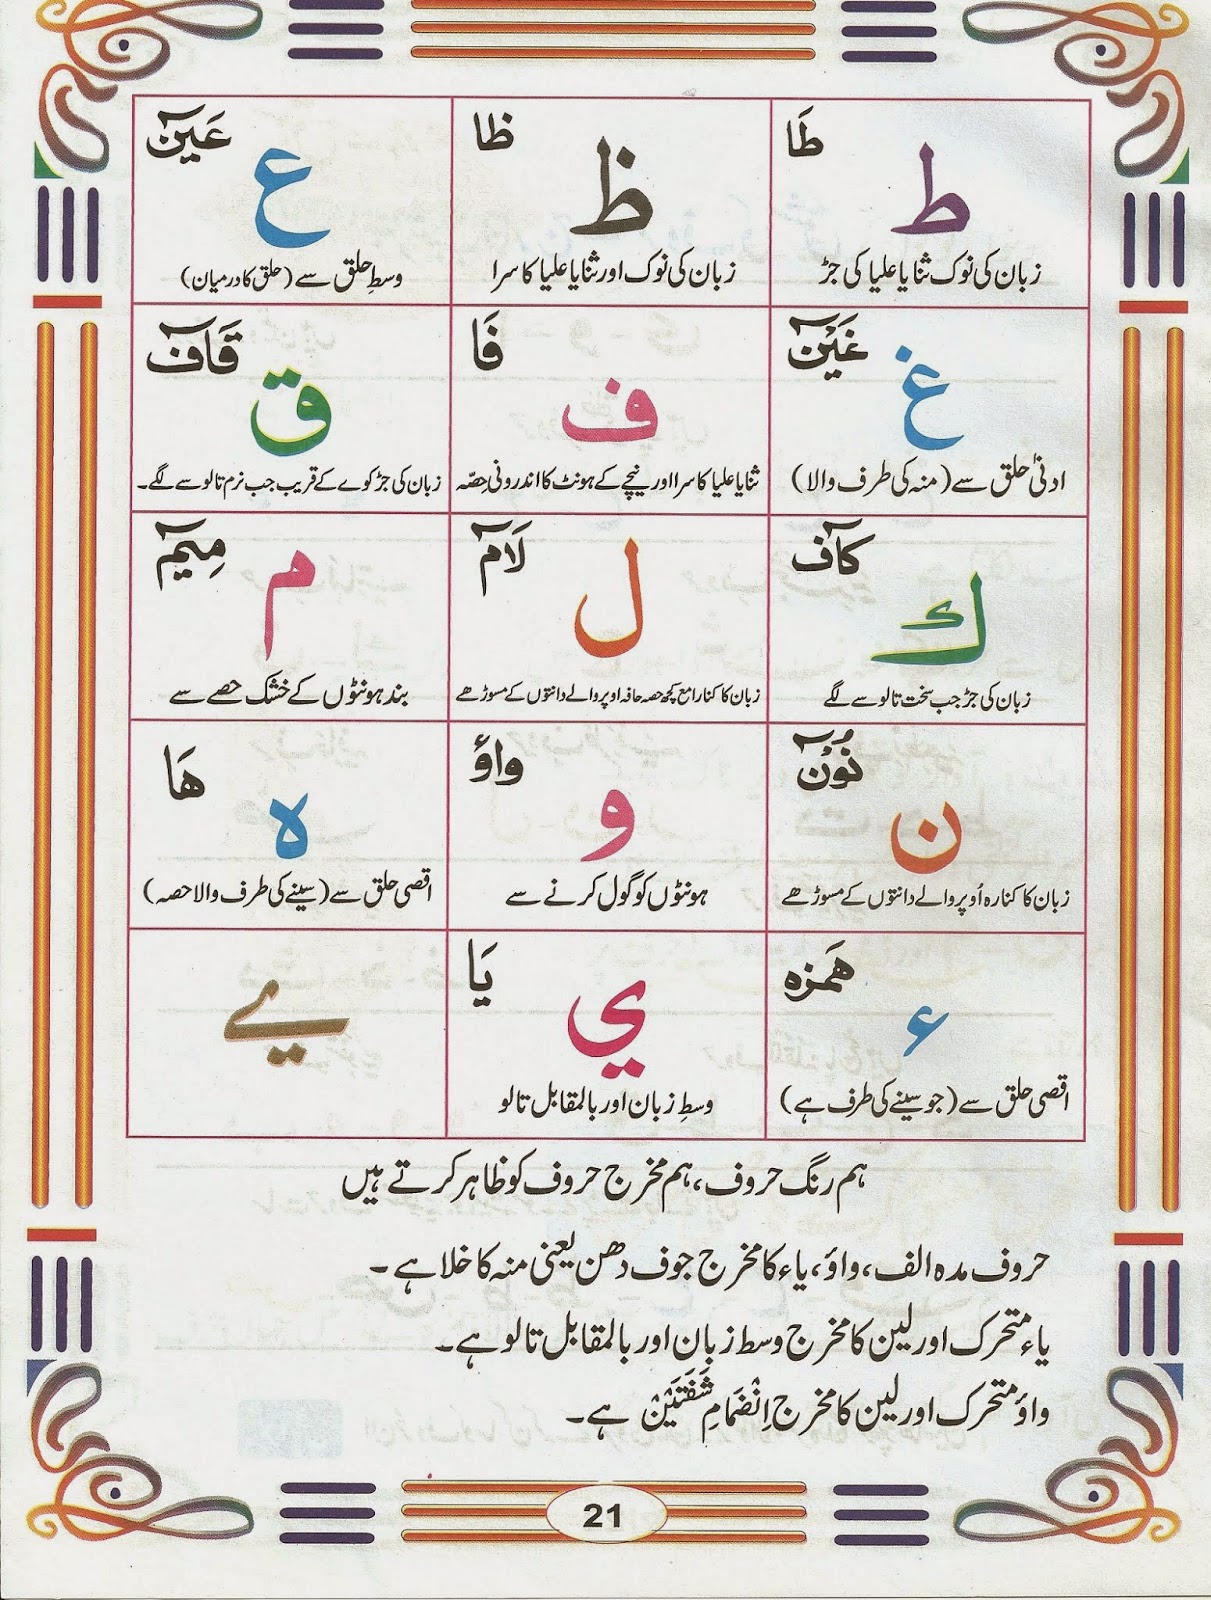 طَا
ط
زبان کی نوک ثنایا علیا کی جڑ
ظا
ظ
زبان کی نوک اور ثنایا علیا کا سرا
عَیۡنٓ
ع
وسطِ حلق سے (حلق کا درمیان)
غَیۡنٓ
غ
ادنیٰ حلق سے (منہ کی طرف والا)
فَا
ف
ثنایا علیا کا سرا اور نیچے کے ہونٹ کا اندرونی حِصّہ
قَآفۡ
ق
زبان کی جڑ کوے کے قریب جب نرم تالو سے لگے۔
کَآفۡ
ك
زبان کی جڑ جب سخت تالو سے لگے
لَآمۡ
ل
زبان کا کنارا مع کچھ حصہ حافہ اوپر والے دانتوں کے مسوڑھے
مِیٓمۡ
م
بند ہونٹوں کے خشک حصے سے
نُوۡنٓ
ن
زبان کا کنارہ اُوپر والے دانتوں کے مسوڑھے
واؤ
و
ہونٹوں کو گول کرنے سے
ھَا
ہ
اقصی حلق سے (سینے کی طرف والا حصہ)
ھَمزہ
ء
اقصی حلق سے (جو سینے کی طرف ہے)
یَا
ي
وسطِ زبان اور بالمقابل تالو
ے
ہم رنگ حروف، ہم مخرج حروف کو ظاہر کرتے ہیں
حروف مدہ الف، واؤ، یاء کا مخرج جوف دھن یعنی منہ کا خلا ہے۔
یاء متحرک اور لین کا مخرج وسط زبان اور بالمقابل تالو ہے۔
واؤ متحرک اور لین کا مخرج اِنْضَمامِ شَفَتَیْنْ ہے۔
21